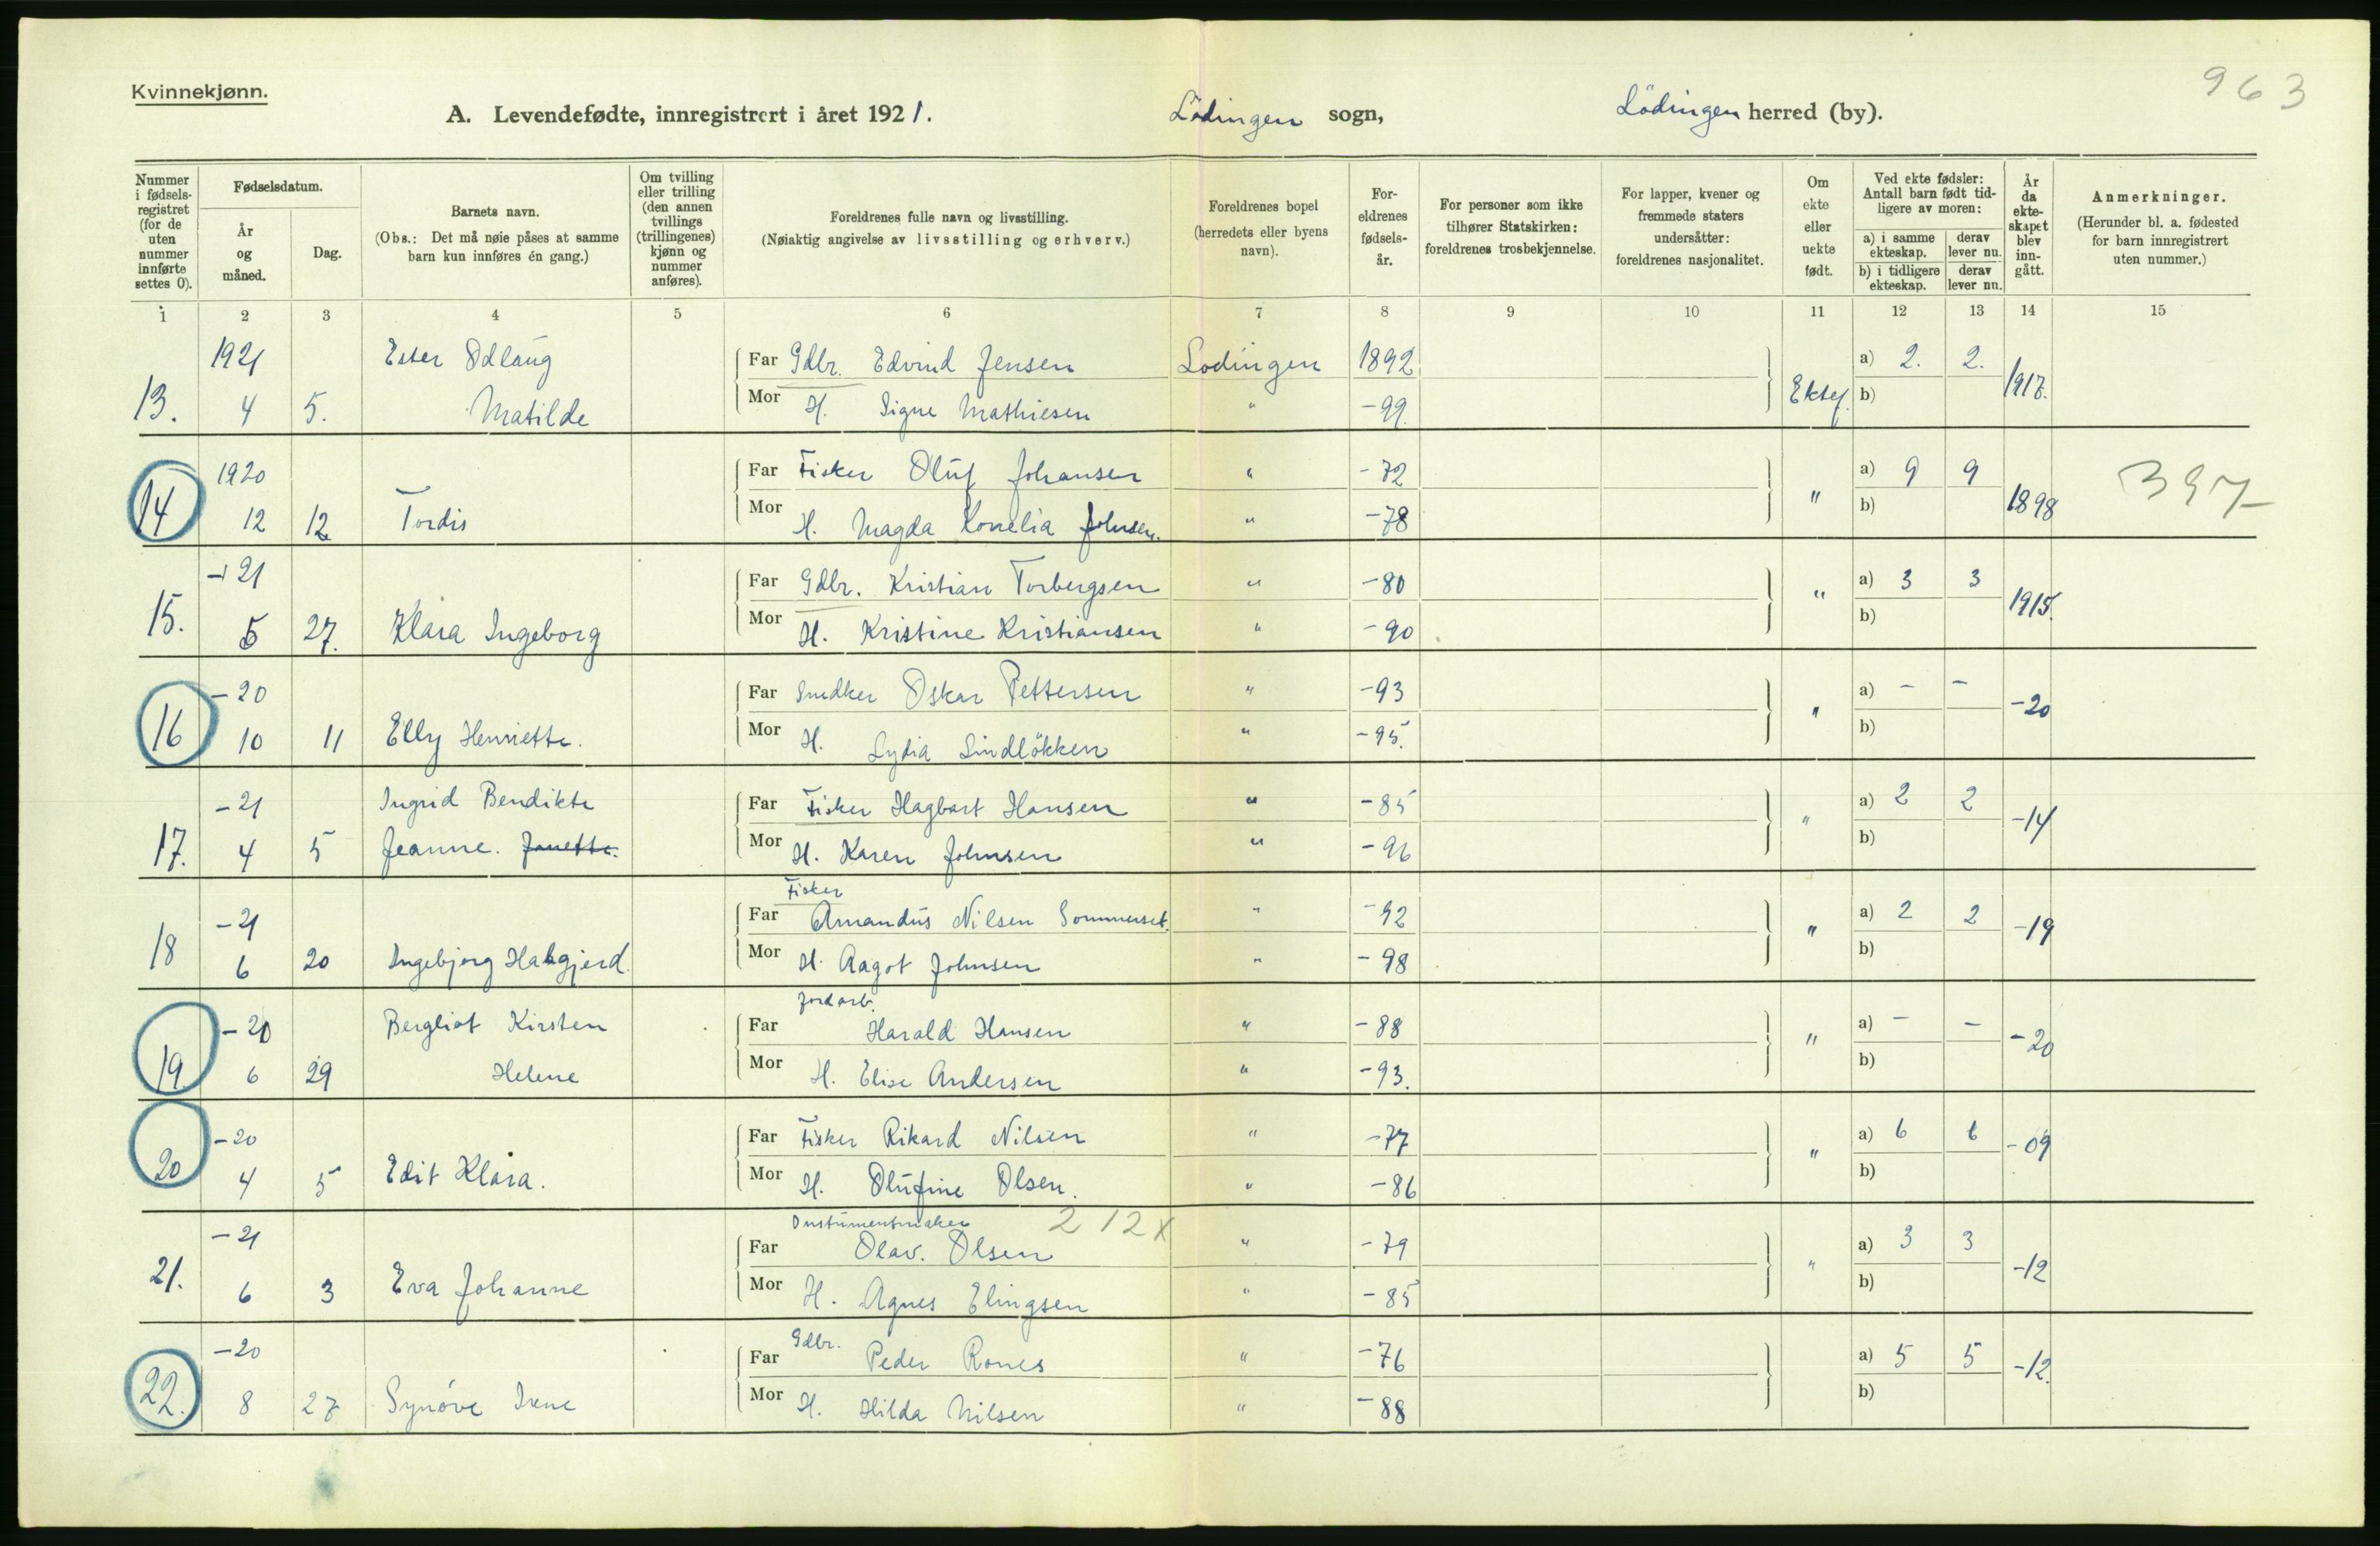 963
Kvinnekjønn.
A. Levendefødte, innregistrert i året 1921. Lödingen sogn, Lödingen herred (by).
Nummer i fødsels-registret (for de uten nummer innførte settes 0). Fødselsdatum. År og måned. Dag. Barnets navn. (Obs.: Det må nøie påses at samme barn kun innføres én gang.) Om tvilling eller trilling (den annen tvillings (trillingenes) kjønn og nummer anføres). Foreldrenes fulle navn og livsstilling. (Nøiaktig angivelse av livsstilling og erhverv.) Foreldrenes bopel (herredets eller byens navn). For-eldrenes fødsels-år. For personer som ikke tilhører Statskirken: foreldrenes trosbekjennelse. For lapper, kvener og fremmede staters undersåtter: foreldrenes nasjonalitet. Om ekte eller uekte født. Ved ekte fødsler: Antall barn født tid-ligere av moren: a) i samme ekteskap. derav lever nu. b) i tidligere ekteskap. derav lever nu. År da ekte-skapet blev inn-gått. Anmerkninger. (Herunder bl. a. fødested for barn innregistrert uten nummer.)
1 2 3 4 5 6 7 8 9 10 11 12 13 14 15
1921 Ester Odlaug Far Gdbr. Edvind Jensen Lodingen 1892 a) 2. 2.
13. 4 5. Matilde Mor H. Signe Mathiesen " -99. Ektef. b) 1917.
1920 Far Fisker Oluf Johansen " -72 a) 9 9 397
14 12 12 Tordis Mor H. Magda Konelia Johnsen. " -78 " b) 1898
-21 Far Gdbr. Kristian Torbergsen " -80 a) 3 3
15. 5 27. Klara Ingeborg Mor H. Kristine Kristiansen " -90 " b) 1915.
-20 Far Snedker Oskar Pettersen " -93 a) - -
16 10 11 Elly Henriette. Mor H. Lydia Lindlökken " -95. " b) -20
-21 Ingrid Bendikte Far Fisker Hagbart Hansen " -85 a) 2 2
17. 4 5 Jeanne. Janette. Mor H. Karen Johnsen " -96 " b) -14
Fisker
-21 Far Amandus Nilsen Sommerset. " -92 a) 2 2
18 6 20 Ingebjørg Halgjerd. Mor H. Aagot Johnsen " -98 " b) -19
Jordarb.
-20 Bergliot Kirsten Far Harald Hansen " -88 a) - -
19 6 29 Helene Mor H. Elise Andersen " -93. " b) -20
-20 Far Fisker Rikard Nilsen " -77 a) 6 6
20 4 5 Edit Klara. Mor H. Olufine Olsen. " -86 " b) -09
Instumentmaker 212x
-21 Far Olav. Olsen " -79 a) 3 3
21. 6 3 Eva Johanne Mor H. Agnes Elingsen " -85 " b) -12
Gdbr.
-20 Far Peder Rones " -76 a) 5 5
22. 8 27 Synöve Irene Mor H. Hilda Nilsen " -88 b) -12.